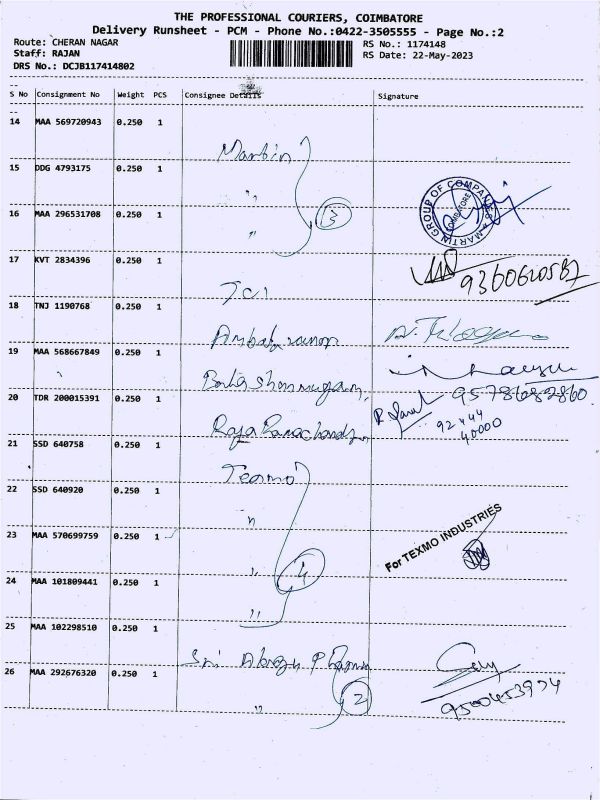 THE PROFESSIONAL COURIERS, COIMBATORE
Delivery Runsheet - PCM - Phone No.:0422-3505555 - Page No.:2
Route: CHERAN NAGAR RS No.: 1174148
Staff: RAJAN RS Date: 22-May-2023
DRS No.: DCJB117414802
S No Consignment No Weight PCS Consignee Details Signature
14 MAA 569720943 0.250 1
Martin
15 DDG 4793175 0.250 1
"
16 MAA 296531708 0.250 1 3
MARTIN GROUP OF COMPANIES COIMBATORE
"
17 KVT 2834396 0.250 1
9360620587
18 TNJ 1190768 0.250 1
19 MAA 568667849 0.250 1
20 TDR 200015391 0.250 1
92444
40000
Raja Ramachandran
21 SSD 640758 0.250 1
Texmo
22 SSD 640920 0.250 1
"
23 MAA 570699759 0.250 1
For TEXMO INDUSTRIES
" 4
24 MAA 101809441 0.250 1
"
25 MAA 102298510 0.250 1
Sri
26 MAA 292676320 0.250 1
2
"